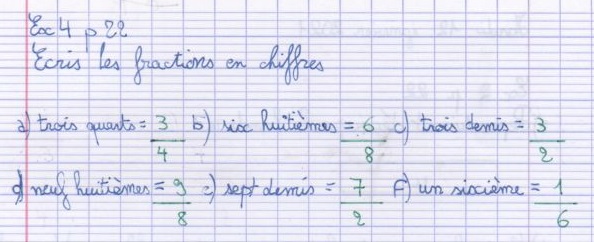 Ex 4 p 22
Ecris les fractions en chiffres
a) trois quarts = 3/4 b) six huitièmes = 6/8 c) trois demis = 3/2
d) neuf huitièmes = 9/8 e) sept demis = 7/2 f) un sixième = 1/6